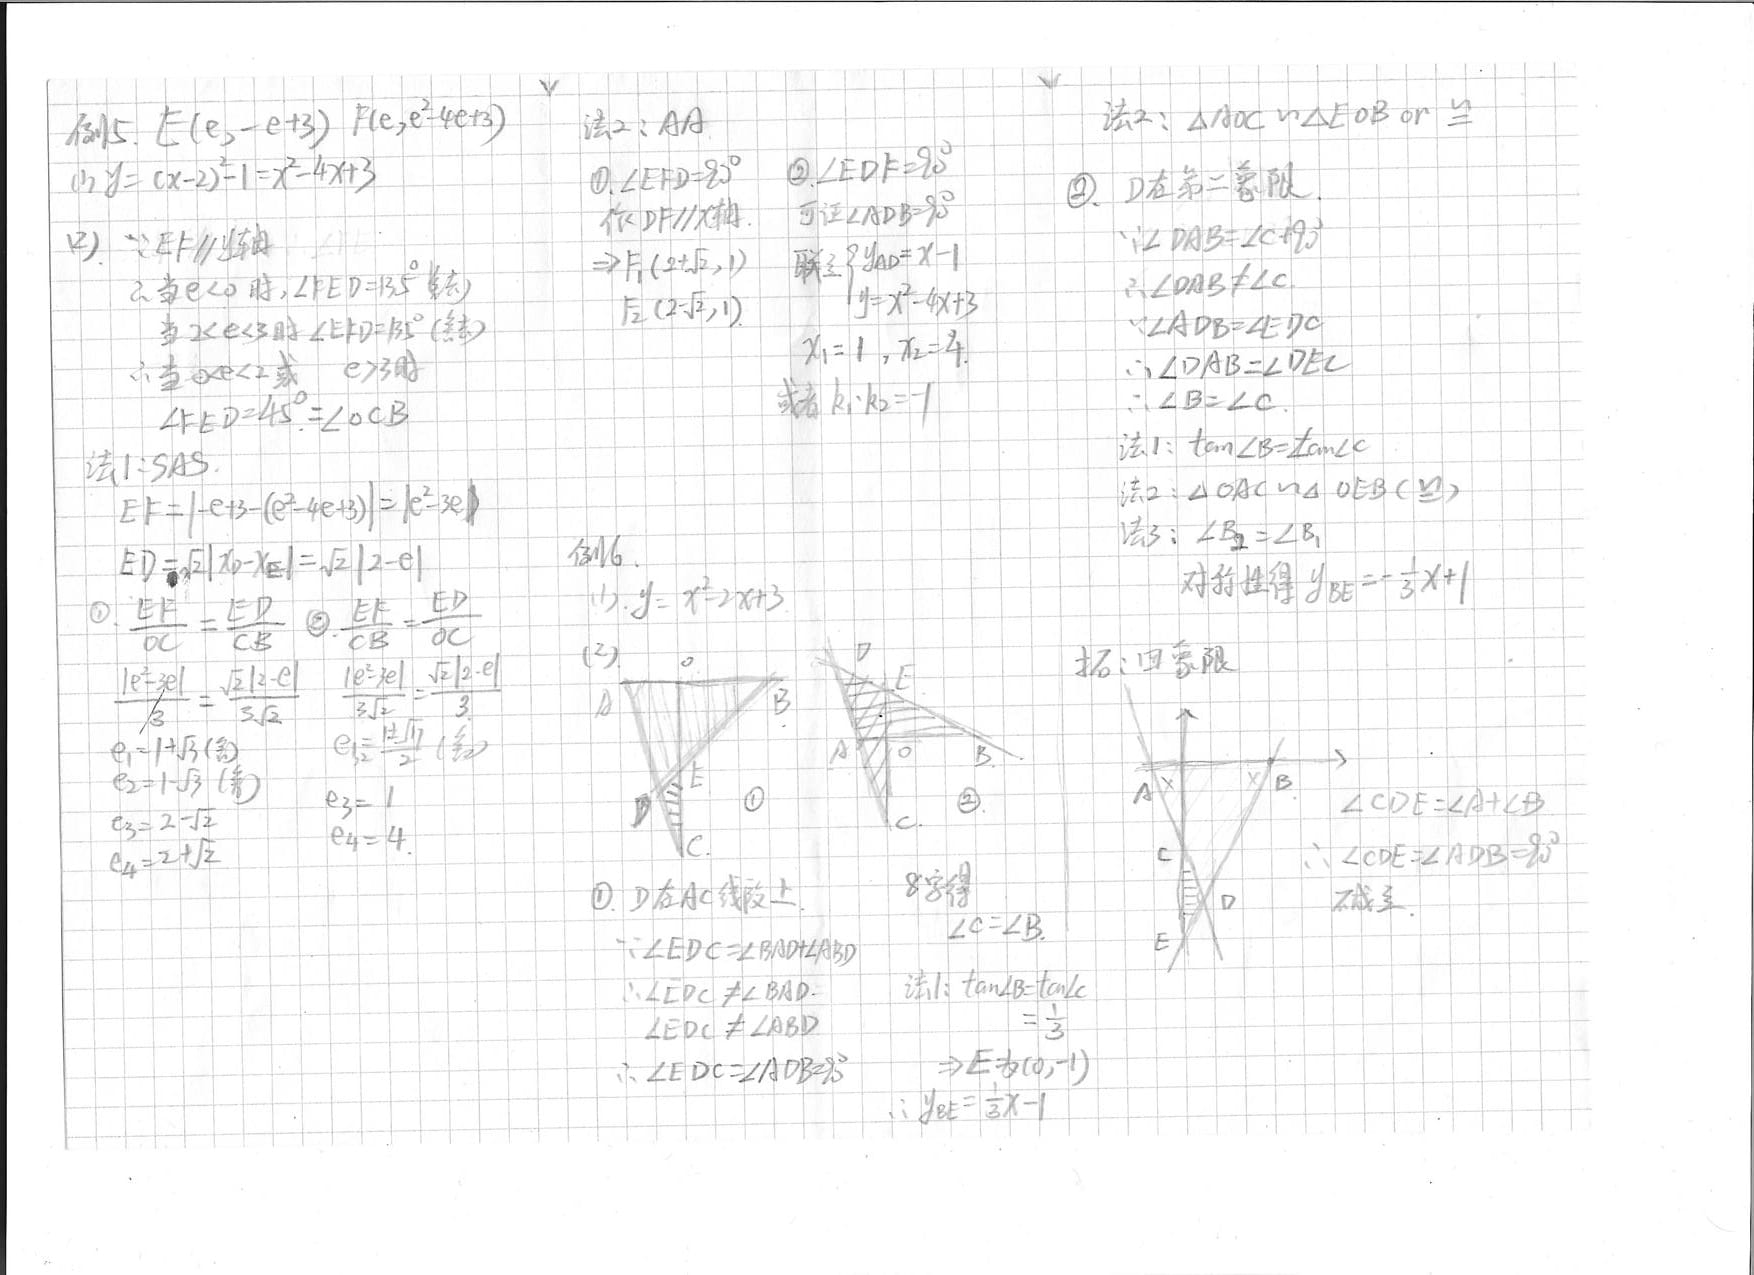 例5. E(e, -e+3) F(e, e²-4e+3)
(1) y=(x-2)²-1=x²-4x+3
(2). ∵EF//y轴
∴当e<0时,∠FED=135°(舍)
当2<e<3时∠EFD=135°(舍)
∴当0<e<2或 e>3时
∠FED=45°=∠OCB
法1:SAS.
EF=|-e+3-(e²-4e+3)|=|e²-3e|
ED=√2|x_D-x_E|=√2|2-e|
①. EF/OC = ED/CB ②. EF/CB = ED/OC
|e²-3e|/3 = √2|2-e|/3√2 |e²-3e|/3√2 = √2|2-e|/3
e₁=1+√3(舍) e₁,₂=(1±√17)/2 (舍)
e₂=1-√3(舍)
e₃=2-√2 e₃=1
e₄=2+√2 e₄=4.
法2:AA
①.∠EFD=90° ②.∠EDF=90°
作DF//x轴. 可证∠ADB=90°
⇒F₁(2+√2,1) 联立{y_AD=x-1
F₂(2-√2,1). y=x²-4x+3
x₁=1, x₂=4.
或者k₁·k₂=-1
例6.
(1). y=x²-2x+3
(2).
A O B D E C ①
D E A O B C ②.
①. D在AC线段上.
∵∠EDC=∠BAD+∠ABD
∴∠EDC≠∠BAD.
∠EDC≠∠ABD
∴∠EDC=∠ADB=90°
8字得
∠C=∠B.
法1: tan∠B=tan∠C
=1/3
⇒E为(0,-1)
∴y_BE=1/3x-1
法2: △AOC∽△EOB or ≌
②. D在第二象限.
∵∠DAB=∠C+90°
∴∠DAB≠∠C.
∵∠ADB=∠EDC
∴∠DAB=∠DEC
∴∠B=∠C.
法1: tan∠B=tan∠C
法2: △OAC∽△OEB(≌)
法3: ∠B₂=∠B₁
对称性得 y_BE=-1/3x+1
拓:四象限
A × × B
C
D
E
∠CDE=∠A+∠B
∴∠CDE=∠ADB=90°
不成立.